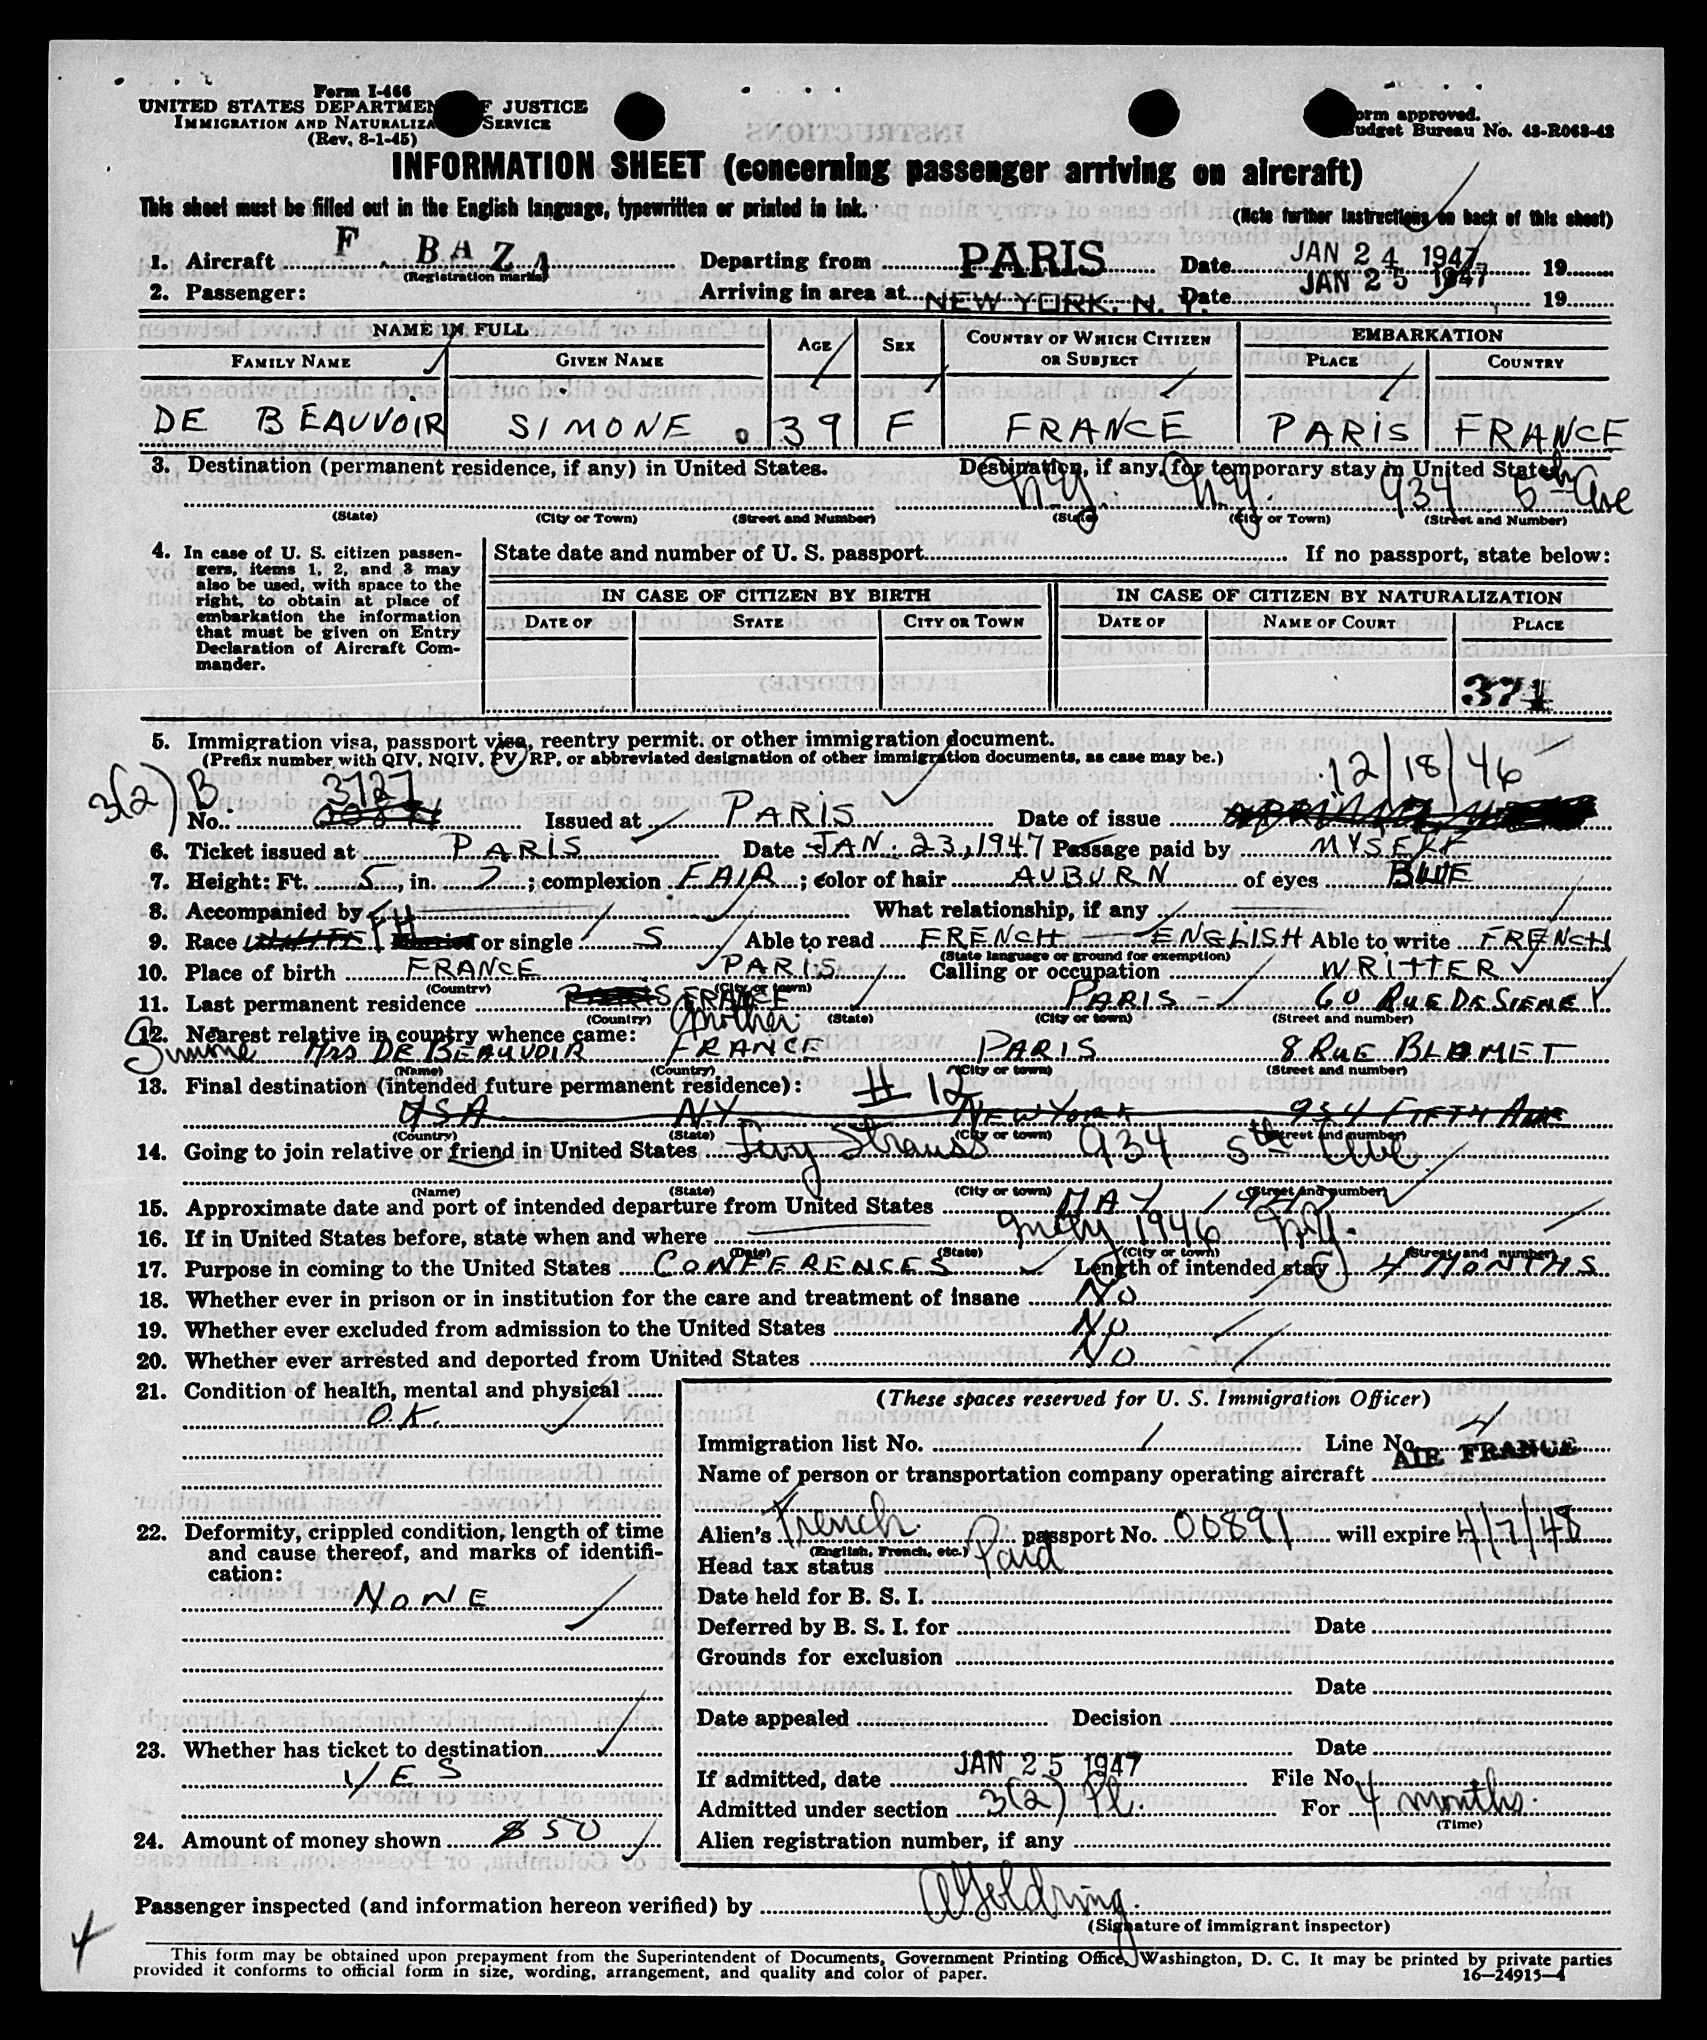 Form I-466
UNITED STATES DEPARTMENT OF JUSTICE
IMMIGRATION AND NATURALIZA SERVICE
(Rev. 8-1-45)
orm approved.
udget Bureau No. 43-R063-42
INFORMATION SHEET (concerning passenger arriving on aircraft)
This sheet must be filled out in the English language, typewritten or printed in ink.
(Note further instructions on back of this sheet)
1. Aircraft F. BAZA Departing from PARIS Date JAN 24 1947 19
(Registration marks)
2. Passenger: Arriving in area at NEW YORK. N. Y. Date JAN 25 1947 19
NAME IN FULL AGE SEX COUNTRY OF WHICH CITIZEN OR SUBJECT EMBARKATION
FAMILY NAME GIVEN NAME PLACE COUNTRY
DE BEAUVOIR SIMONE 39 F FRANCE PARIS FRANCE
3. Destination (permanent residence, if any) in United States. Destination, if any, for temporary stay in United States
N.Y. N.Y. 934 5th Ave
(State) (City or Town) (Street and Number) (State) (City or Town) (Street and Number)
4. In case of U. S. citizen passen-
gers, items 1, 2, and 3 may
also be used, with space to the
right, to obtain at place of
embarkation the information
that must be given on Entry
Declaration of Aircraft Com-
mander.
State date and number of U. S. passport If no passport, state below:
IN CASE OF CITIZEN BY BIRTH IN CASE OF CITIZEN BY NATURALIZATION
DATE OF STATE CITY OR TOWN DATE OF NAME OF COURT PLACE
371
5. Immigration visa, passport visa, reentry permit, or other immigration document.
(Prefix number with QIV, NQIV, PV, RP, or abbreviated designation of other immigration documents, as case may be.)
3(2) B 3727 12/18/46
No. Issued at PARIS Date of issue
6. Ticket issued at PARIS Date JAN. 23, 1947 Passage paid by MYSELF
7. Height: Ft. 5, in. 7; complexion FAIR; color of hair AUBURN of eyes BLUE
8. Accompanied by What relationship, if any
9. Race WHITE FH Married or single S Able to read FRENCH ENGLISH Able to write FRENCH
(State language or ground for exemption)
10. Place of birth FRANCE PARIS Calling or occupation WRITTER
(Country) (City or town)
11. Last permanent residence PARIS FRANCE PARIS - 60 RUE DE SIENE
(Country) (State) (City or town) (Street and number)
12. Nearest relative in country whence came: mother
Simone MRS DE BEAUVOIR FRANCE PARIS 8 RUE BLOMET
(Name) (Country) (City or town) (Street and number)
13. Final destination (intended future permanent residence): # 12
USA N.Y. NEW YORK 934 FIFTH AVE
(Country) (State) (City or town) (Street and number)
14. Going to join relative or friend in United States Levy Strauss 934 5th Ave.
(Name) (State) (City or town) (Street and number)
15. Approximate date and port of intended departure from United States MAY 1947
16. If in United States before, state when and where 1946 N.Y.
(Date) (State) (City or town) (Street and number)
17. Purpose in coming to the United States CONFERENCES Length of intended stay 4 MONTHS
18. Whether ever in prison or in institution for the care and treatment of insane NO
19. Whether ever excluded from admission to the United States NO
20. Whether ever arrested and deported from United States NO
21. Condition of health, mental and physical
O.K.
22. Deformity, crippled condition, length of time
and cause thereof, and marks of identifi-
cation:
NONE
23. Whether has ticket to destination
YES
24. Amount of money shown $50
(These spaces reserved for U. S. Immigration Officer)
Immigration list No. 1 Line No. 4
AIR FRANCE
Name of person or transportation company operating aircraft
Alien's French passport No. 00891 will expire 4/7/48
(English, French, etc.)
Head tax status Paid
Date held for B. S. I.
Deferred by B. S. I. for Date
Grounds for exclusion
Date
Date appealed Decision
Date
If admitted, date JAN 25 1947 File No.
Admitted under section 3(2) Pl. For 4 months.
(Time)
Alien registration number, if any
Passenger inspected (and information hereon verified) by A Goldring.
(Signature of immigrant inspector)
4
This form may be obtained upon prepayment from the Superintendent of Documents, Government Printing Office, Washington, D. C. It may be printed by private parties
provided it conforms to official form in size, wording, arrangement, and quality and color of paper. 16—24915-1